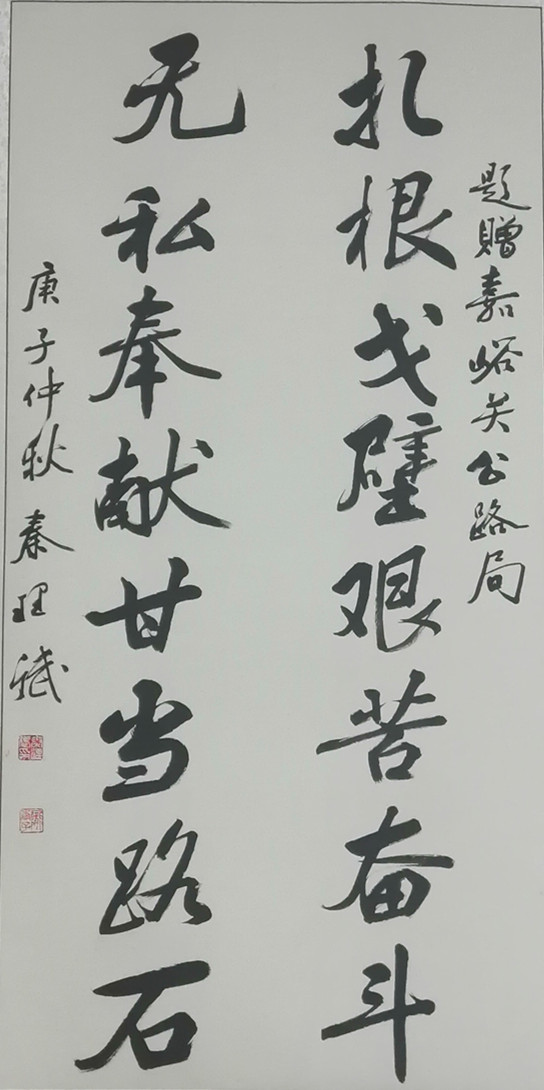 题赠嘉峪关公路局
扎根戈壁艰苦奋斗
无私奉献甘当路石
庚子仲秋 秦理斌